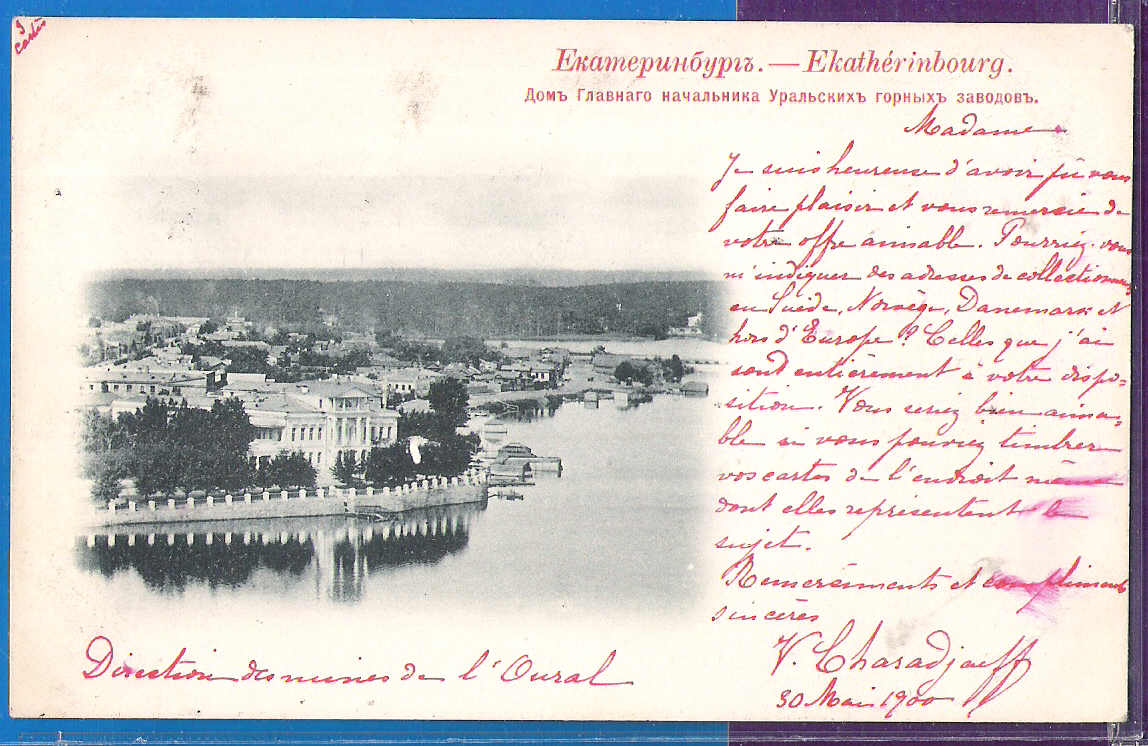 3
cartes
Екатеринбургъ. — Ekathérinbourg.
Домъ Главнаго начальника Уральскихъ горныхъ заводовъ.
Madame
Je suis heureuse d'avoir pu vous
faire plaisir et vous remercie de
votre offre aimable. Pourriez-vous
m'indiquer des adresses de collectionneurs
en Suède, Norvège, Danemark et
hors d'Europe? Celles que j'ai
sont entièrement à votre dispo-
sition. Vous seriez bien aima-
ble si vous pouviez timbrer
vos cartes de l'endroit même
dont elles représentent le
sujet.
Remerciments et compliments
sincères
V. Charadjaeff
30 Mai 1900
Direction des mines de l'Oural